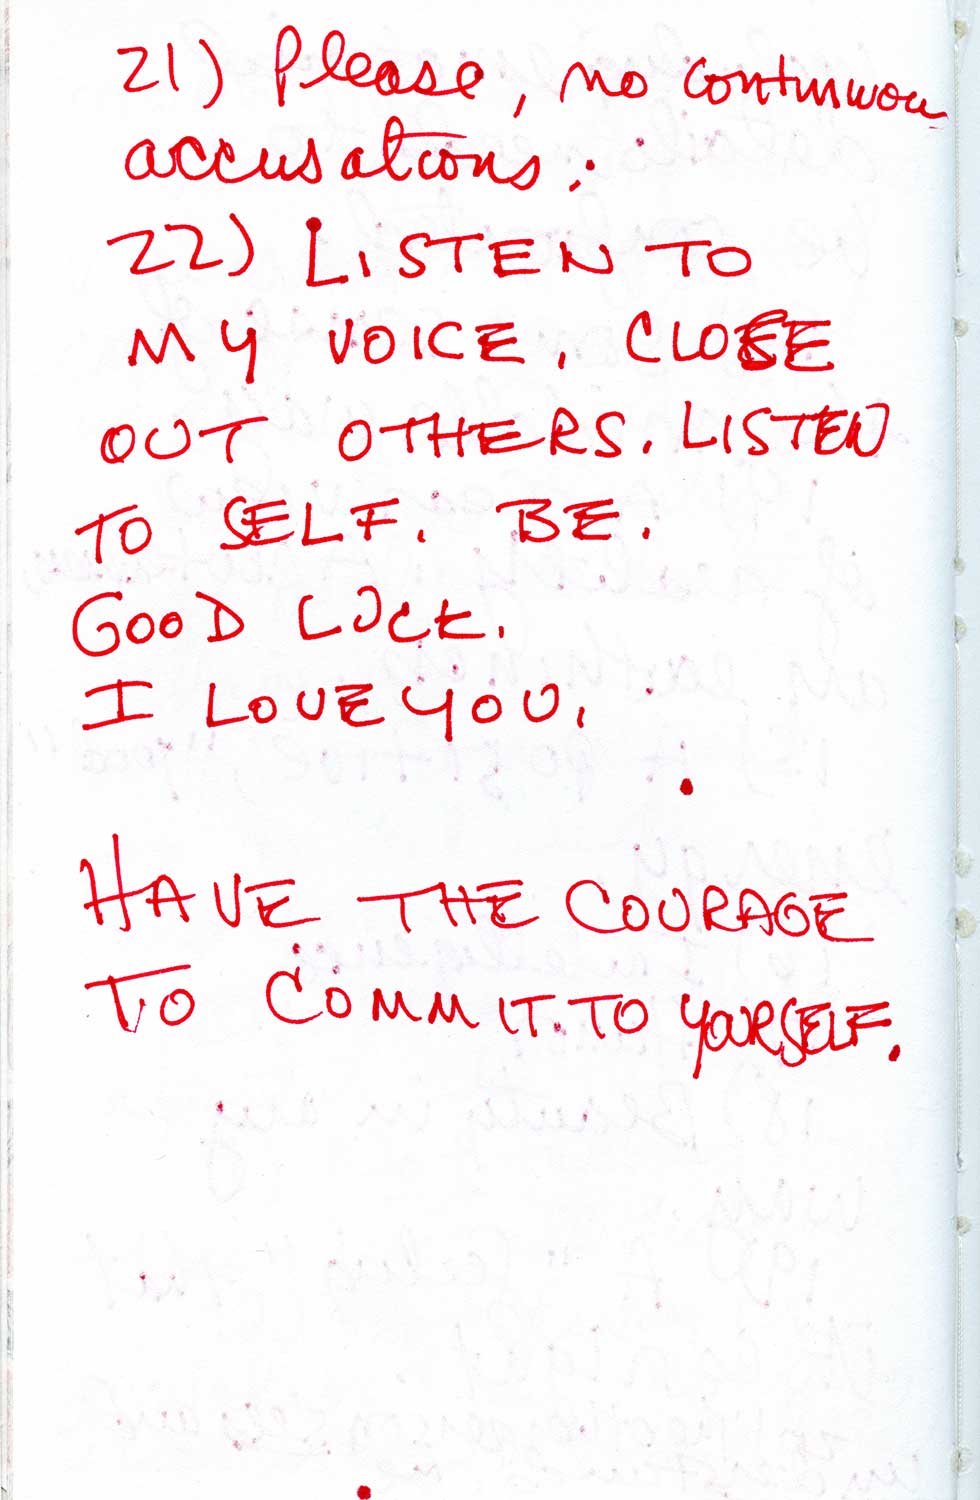 21) Please, no continuou
accusations;
22) LISTEN TO
MY VOICE. CLOSE
OUT OTHERS. LISTEN
TO SELF. BE.
GOOD LUCK.
I LOVE YOU.
HAVE THE COURAGE
TO COMMIT TO YOURSELF.